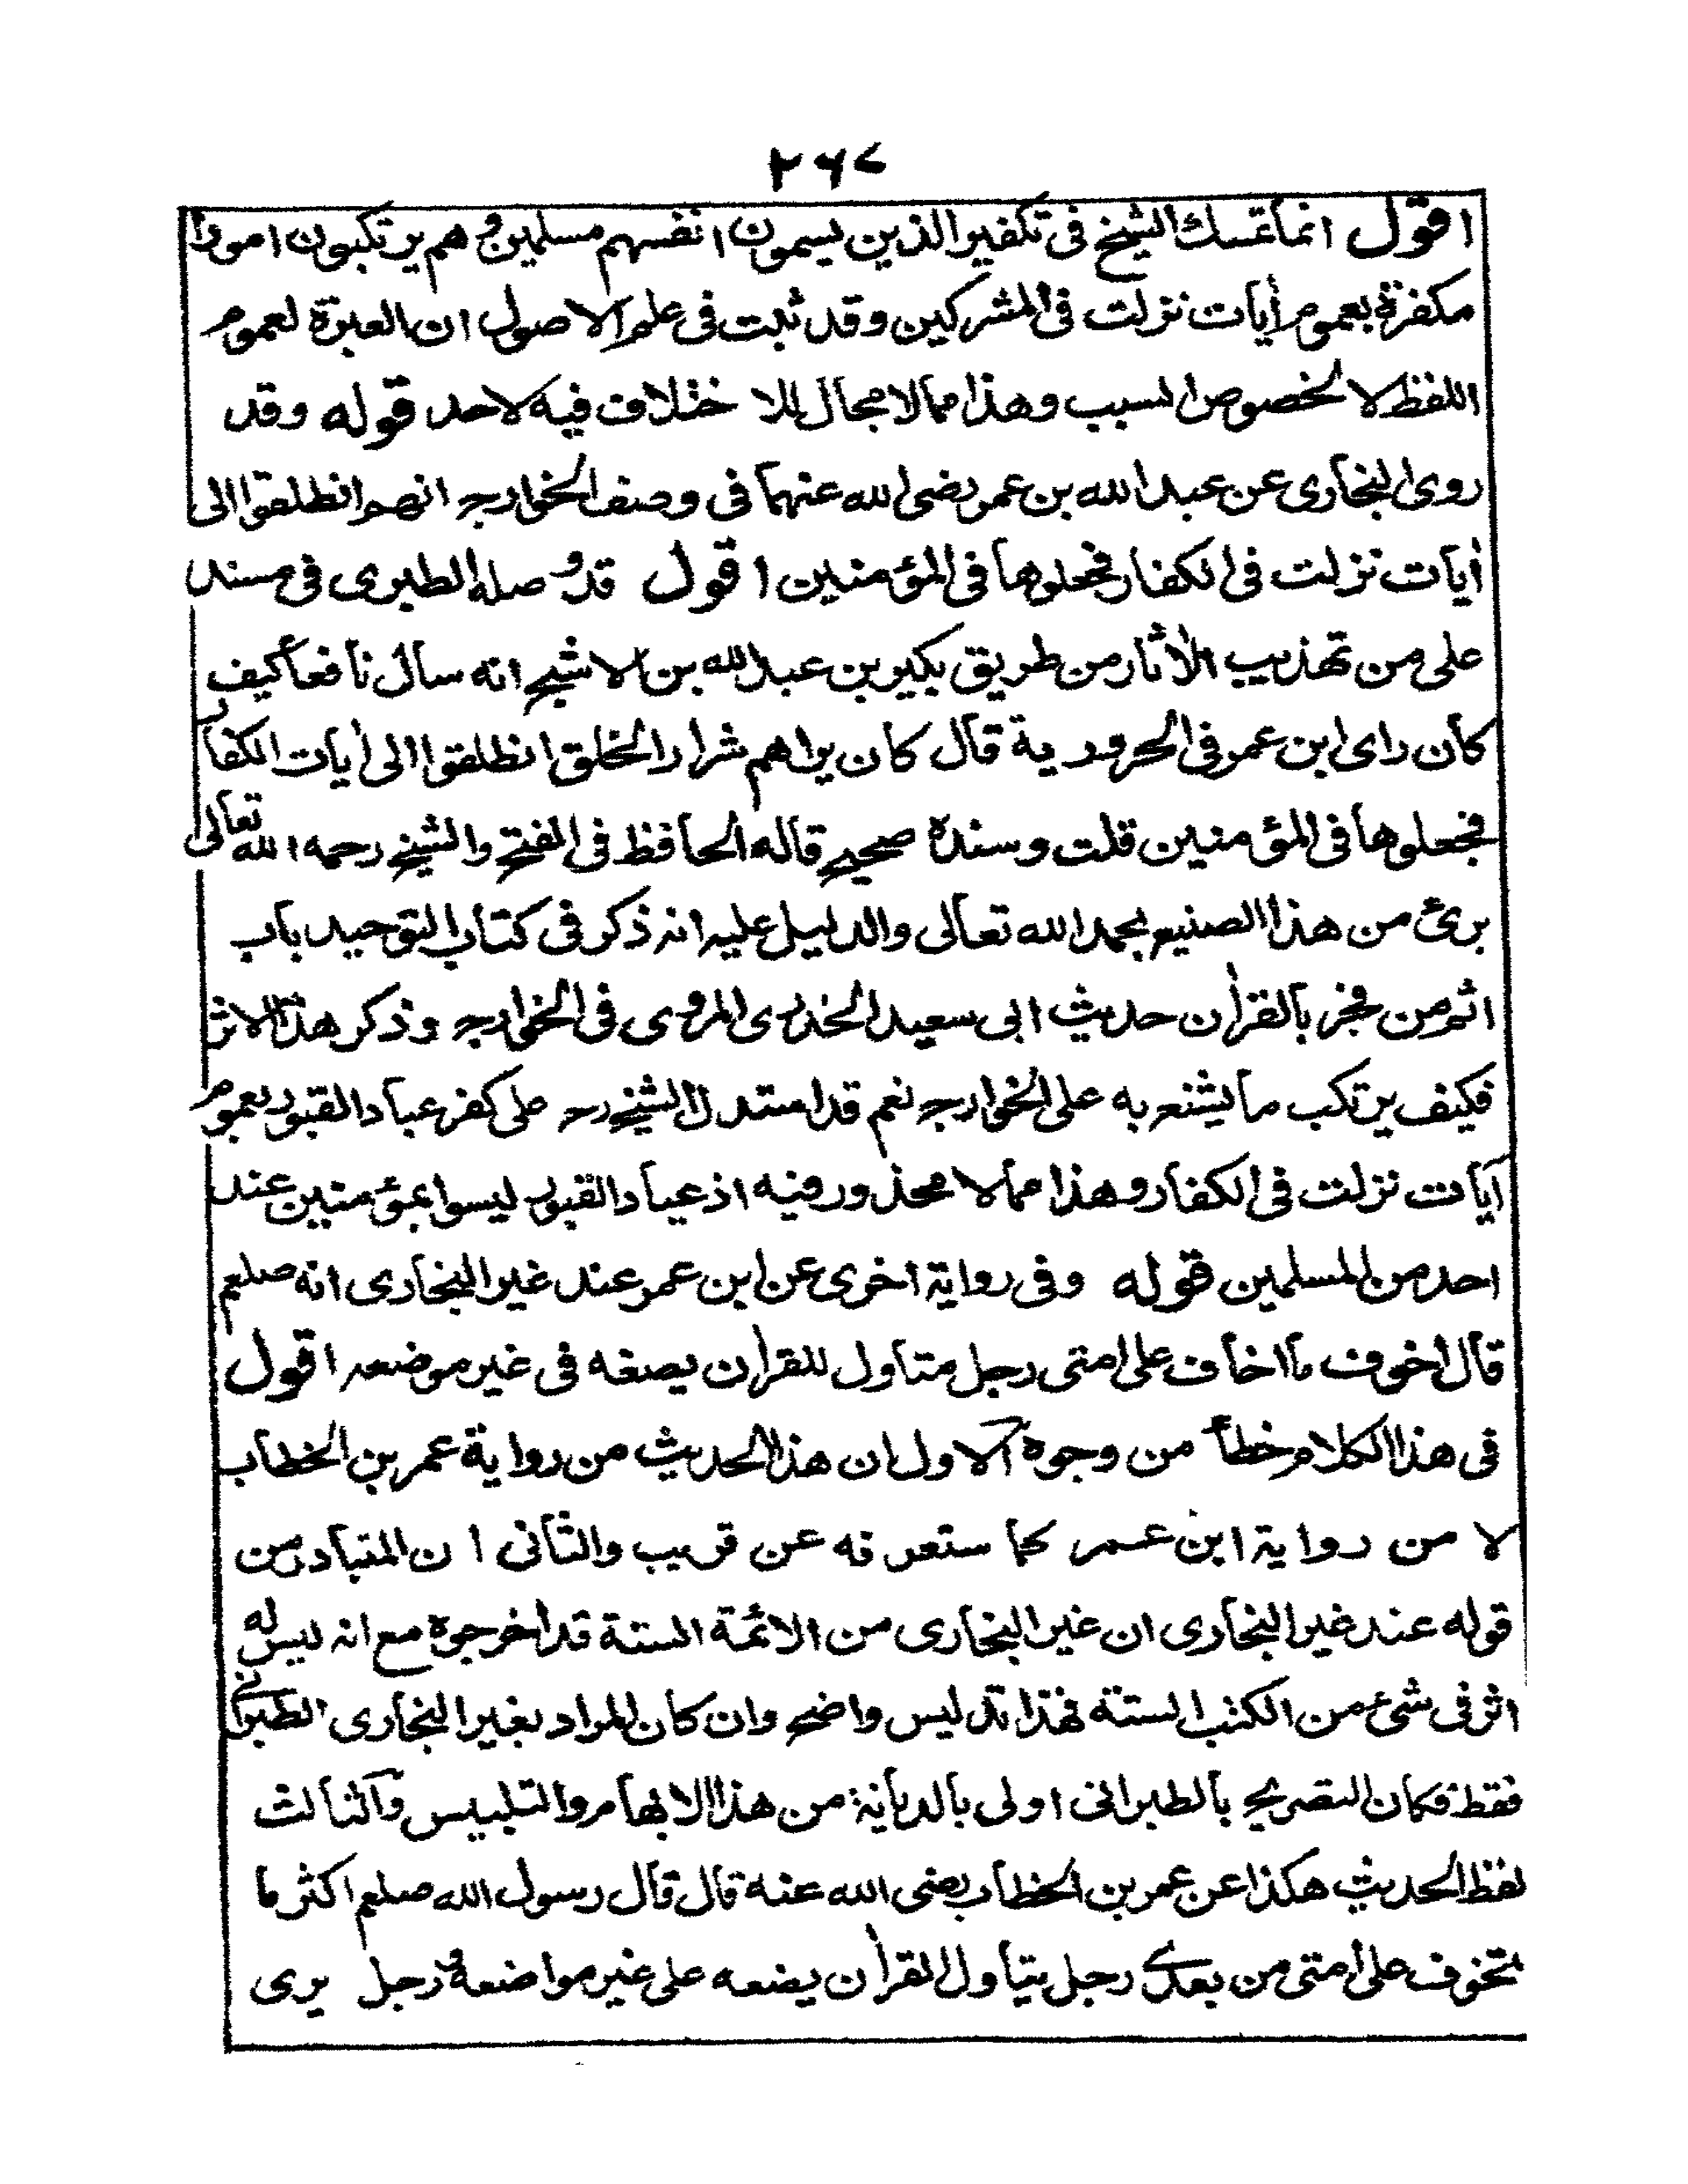 ٢٦٧
اقول انما تمسك الشيخ فى تكفير الذين يسمون انفسهم مسلمين وهم يرتكبون امورا
مكفرة بعموم أيات نزلت فى المشركين وقد ثبت فى علم الاصول ان العبرة لعموم
اللفظ لا لخصوص السبب وهذا مما لا مجال للاختلاف فيه لاحد قوله وقد
روى البخارى عن عبد الله بن عمر رضى الله عنهما فى وصف الخوارج انهم انطلقوا الى
أيات نزلت فى الكفار فجعلوها فى المؤمنين اقول قد وصله الطبرى فى مسند
على من تهذيب الأثار من طريق بكير بن عبد الله بن الاشج انه سأل نافعا كيف
كان راى ابن عمر فى الحرورية قال كان يراهم شرار الخلق انطلقوا الى أيات الكفار
فجعلوها فى المؤمنين قلت وسنده صحيح قاله الحافظ فى الفتح والشيخ رحمه الله تعالى
برئ من هذا الصنيع بحمد الله تعالى والدليل عليه انه ذكر فى كتاب التوحيد باب
اثم من فجر بالقرأن حديث ابى سعيد الخدرى المروى فى الخوارج وذكر هذا الاثر
فكيف يرتكب ما يشنع به على الخوارج نعم قد استدل الشيخ رح على كفر عباد القبور بعموم
آيات نزلت فى الكفار وهذا مما لا محذور فيه اذ عباد القبور ليسوا بمؤمنين عند
احد من المسلمين قوله وفى رواية اخرى عن ابن عمر عند غير البخارى انه صلعم
قال اخوف ما اخاف على امتى رجل متاول للقرأن يصنعه فى غير موضعه اقول
فى هذا الكلام خطأ من وجوه الاول ان هذا الحديث من رواية عمر بن الخطاب
لا من رواية ابن عمر كما ستعرفه عن قريب والثانى ان المتبادر من
قوله عند غير البخارى ان غير البخارى من الائمة الستة قد اخرجوه مع انه ليس له
اثر فى شئ من الكتب الستة فهذا تدليس واضح وان كان المراد بغير البخارى الطبرانى
فقط فكان التصريح بالطبرانى اولى بالديانة من هذا الابهام والتلبيس والثالث
لفظ الحديث هكذا عن عمر بن الخطاب رضى الله عنه قال قال رسول الله صلعم اكثر ما
اتخوف على امتى من بعدى رجل يتأول القرأن يضعه على غير مواضعه ورجل يرى